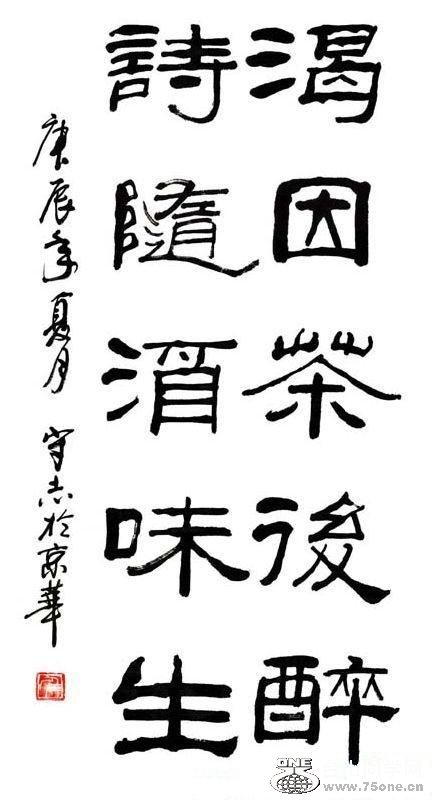 渴因茶後醉
詩隨酒味生
庚辰年夏月 守志於京華
ONE
www.75one.cn